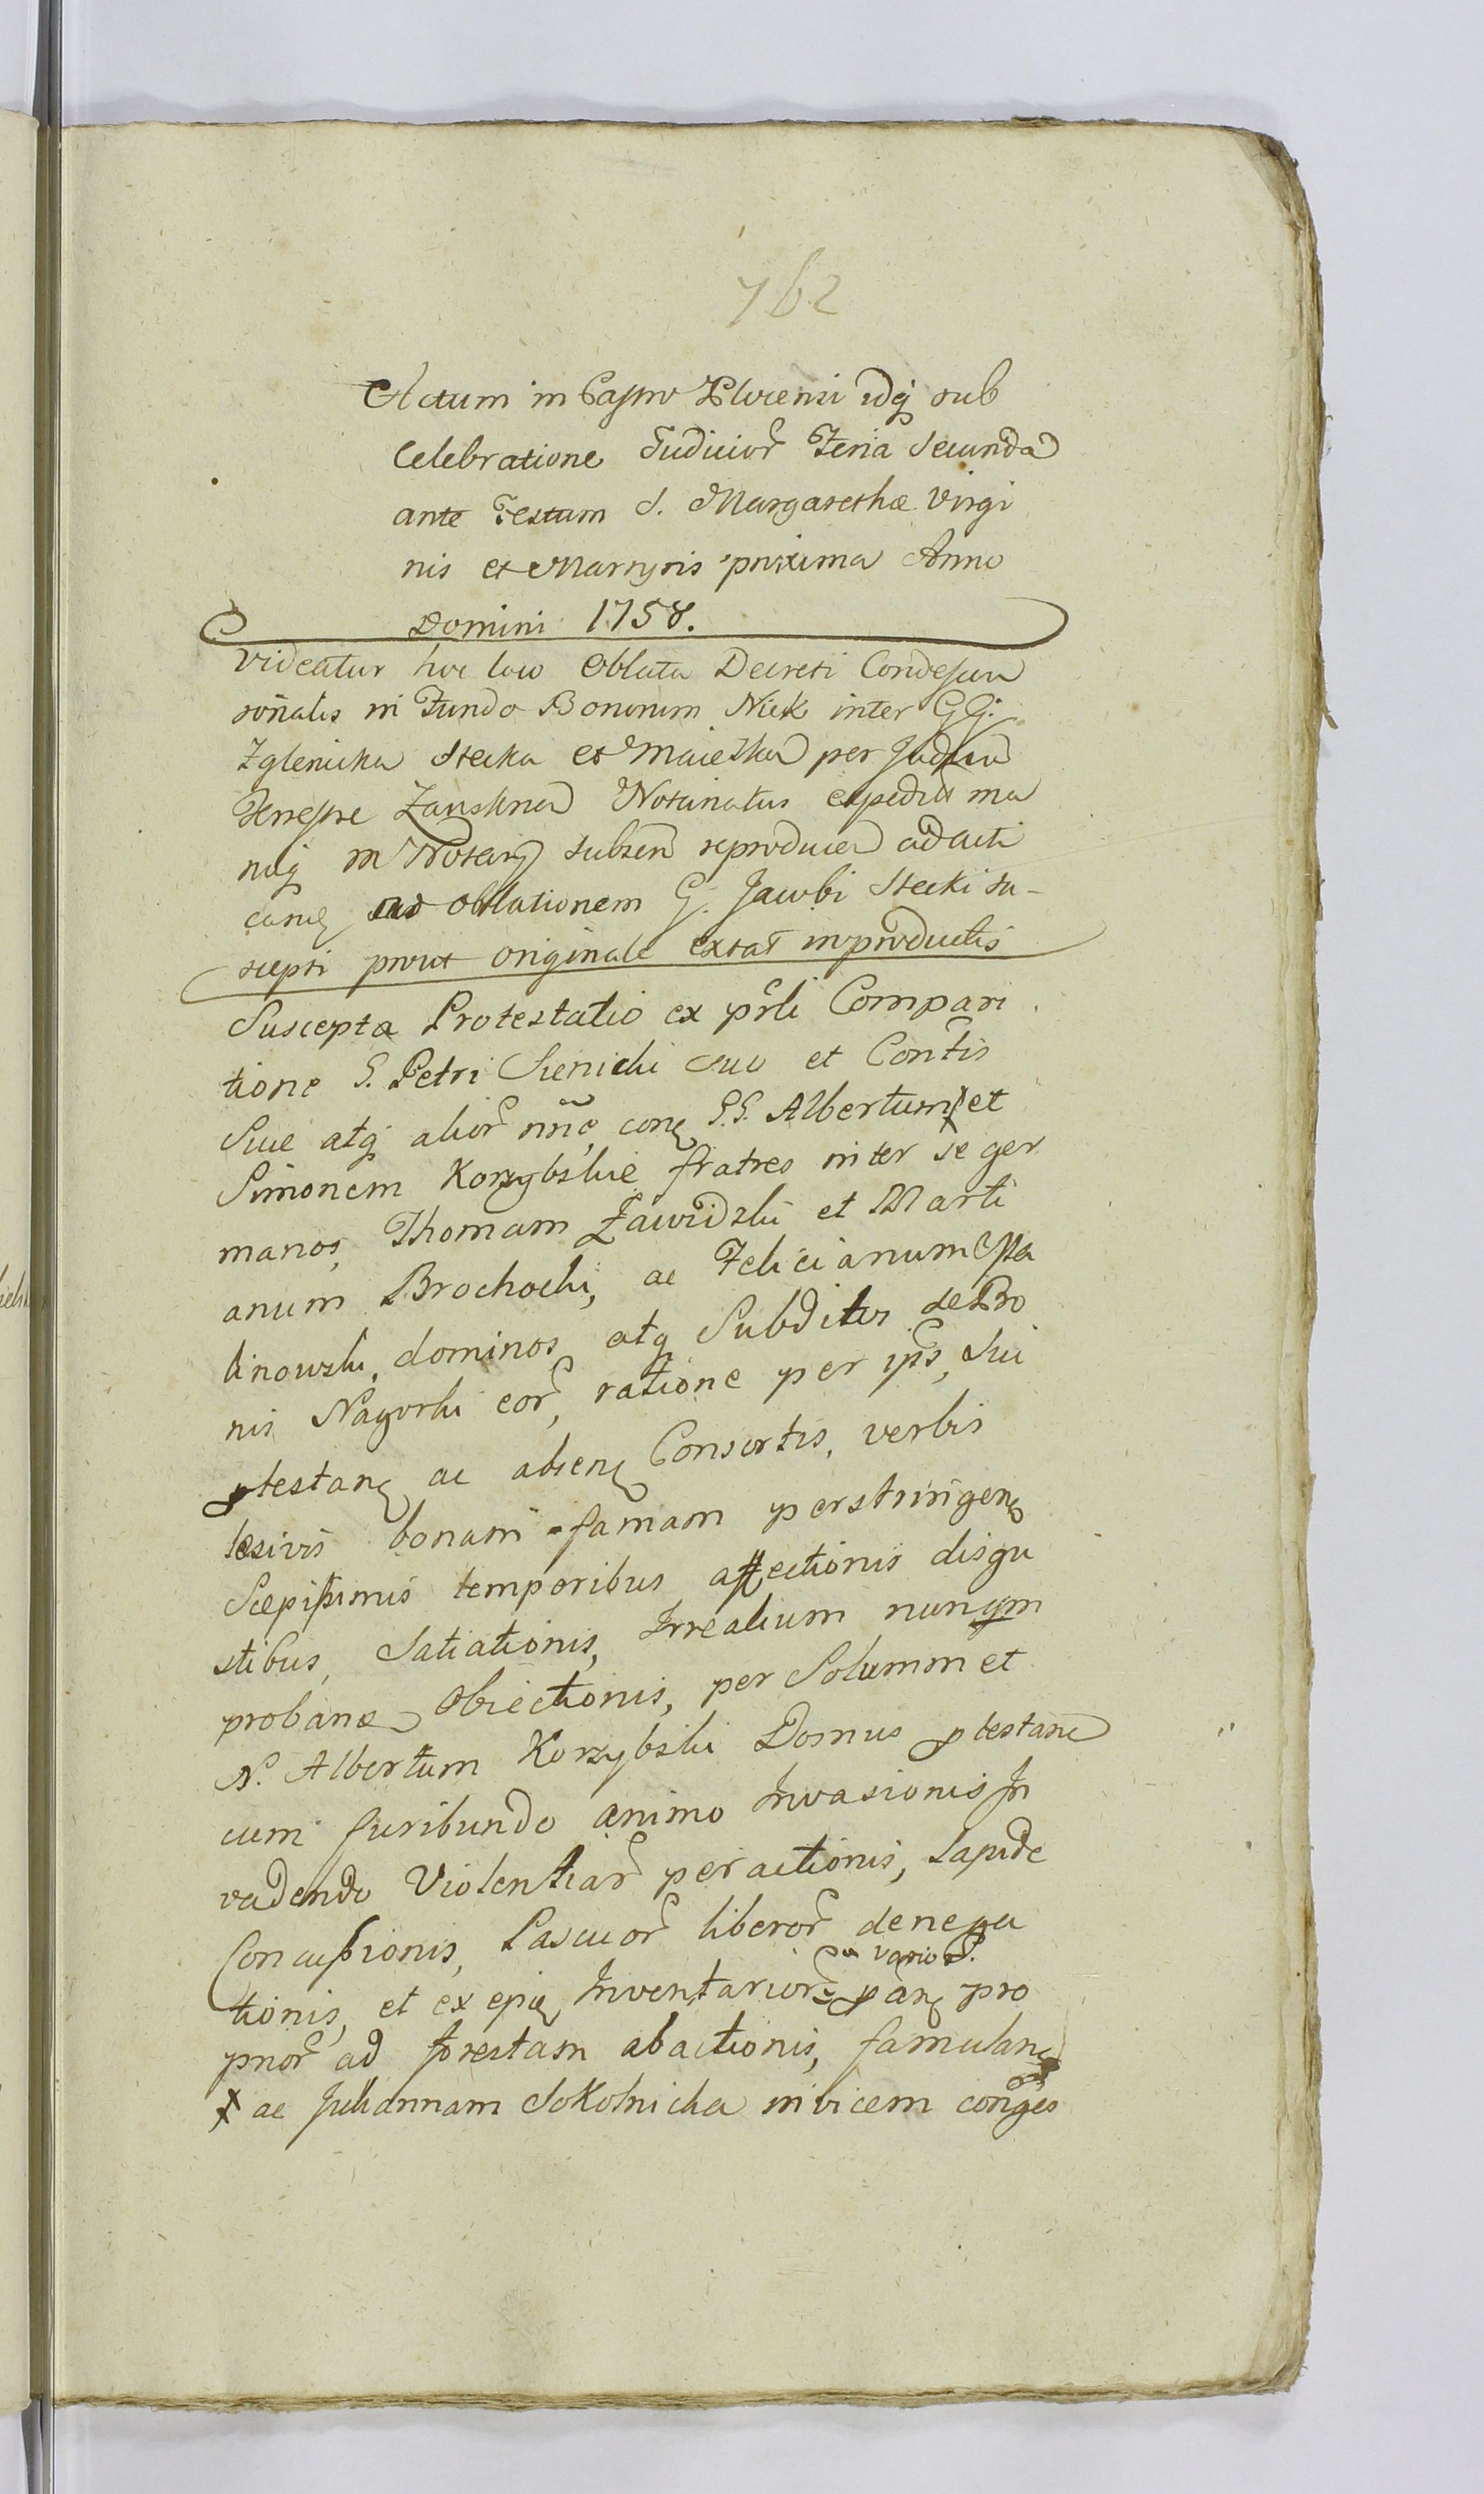 762
Actum in Castro Plocensi idq sub
Celebratione Judicior Feria Secunda
ante Festum S. Margarethæ Virgi
nis et Martyris proxima Anno
Domini 1758.
Videatur hoc loco Oblata Decreti Condescen
sonalis in Fundo Bonorum Nick inter GG:
Zglenicka Stecka et per
Terrestre Notariatus expedit ma
nuq m Notarij subscri reproducen ad acti
canq ad Oblationem G. Jacobi Stecki su-
scepti prout originale extat in productis
Suscepta Protestatio ex prli Compari
tione G. Petri Sienicki suo et Contis
Suæ atq alior nñe, conq G.G. Albertum x et
Simonem Korzybskie fratres inter se ger
manos, Thomam Zawidzki et Marti
anum Brochocki, ac Felicianum Osta
linowski, dominos atq Subditos de Bro
nis Nagorki eor, ratione per ips, Sui
ptestanq ac absenq Consortis, verbis
lesivis bonam famam perstringenq
Sæpissimis temporibus affectionis disgu
stibus, Satiationis, Irrealium nunqm
probanæ Obiectionis, per Solummet
N. Albertum Korzybski Domus ptestane
cum furibundo animo Invasionis In
vadendo Violentiar peractionis, Lapide
Concussionis, Pascuor liberor denega
tionis, et ex epiq Inventarior pro
prior ad forestam abactionis, famulanq
x ac Juliannam Sokolnicka invicem conges